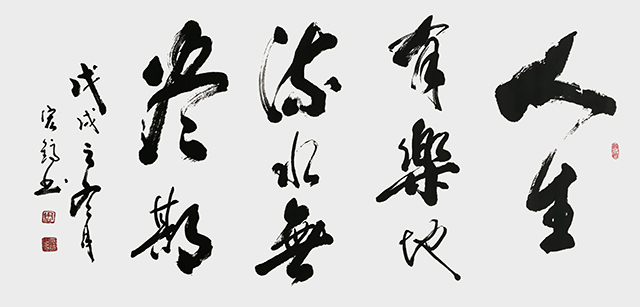 人生
有樂地
流水無
尽期
戊戌之冬月
宏書